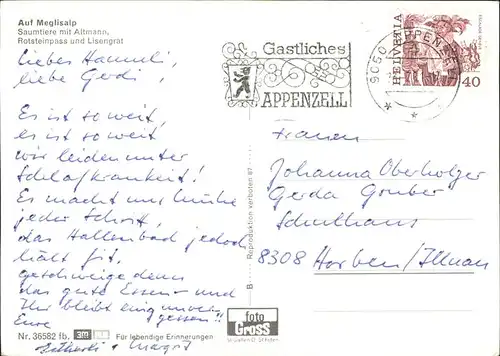 Auf Meglisalp
Saumtiere mit Altmann,
Rotsteinpass und Lisengrat
Liebes Hanneli,
liebe Gerdi,
Es ist so weit,
es ist so weit
wir leiden unter
Schlafkrankeit!
Es macht uns Mühe
jeder Schritt,
das Hallenbad jedoch
hält fit,
geschweige denn
das gute Essen - und
Ihr bleibt eing unver-
gessen!!
Eure
+ Margrit
Nr. 36582 fb.
Für lebendige Erinnerungen
Reproduktion verboten 87
B
foto
Gross
St. Gallen
Gastliches
APPENZELL
9050 APPENZELL
HELVETIA
40
Frauen
Johanna Oberholzer
Gerda Gruber
Schulhaus
8308 Horben/Illnau